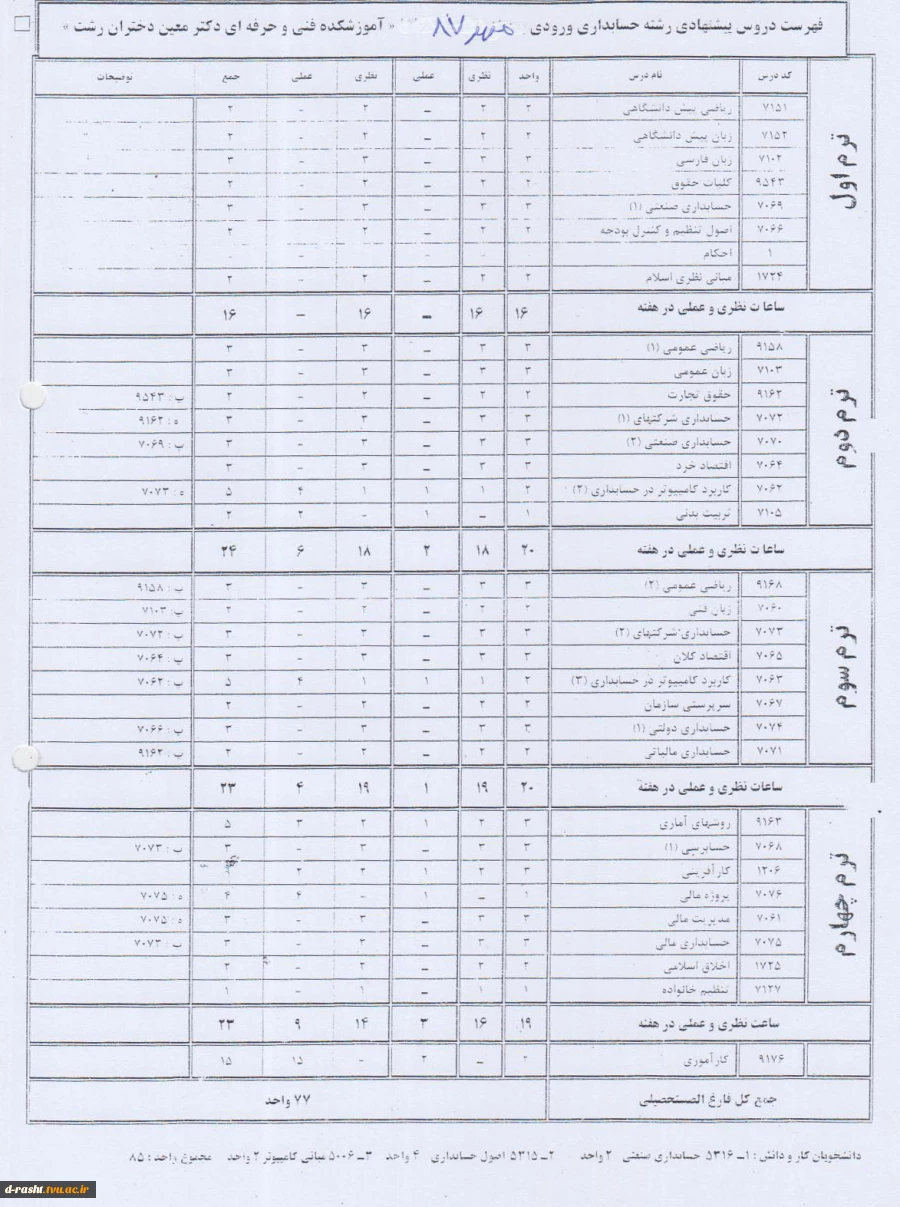 فهرست دروس پیشنهادی رشته حسابداری ورودی مهر ۸۷ « آموزشکده فنی و حرفه ای دکتر معین دختران رشت »
کد درس نام درس واحد نظری عملی نظری عملی جمع توضیحات
ترم اول
۷۱۵۱ ریاضی پیش دانشگاهی ۲ ۲ – ۲ – ۲
۷۱۵۲ زبان پیش دانشگاهی ۲ ۲ – ۲ – ۲
۷۱۰۲ زبان فارسی ۳ ۳ – ۳ – ۳
۹۵۴۳ کلیات حقوق ۲ ۲ – ۲ – ۲
۷۰۶۹ حسابداری صنعتی (۱) ۳ ۳ – ۳ – ۳
۷۰۶۶ اصول تنظیم و کنترل بودجه ۲ ۲ – ۲ – ۲
۱ احکام
۱۷۲۴ مبانی نظری اسلام ۲ ۲ – ۲ – ۲
ساعات نظری و عملی در هفته ۱۶ ۱۶ – ۱۶ – ۱۶
ترم دوم
۹۱۵۸ ریاضی عمومی (۱) ۳ ۳ – ۳ – ۳
۷۱۰۳ زبان عمومی ۳ ۳ – ۳ – ۳
۹۱۶۲ حقوق تجارت ۲ ۲ – ۲ – ۲ پ : ۹۵۴۳
۷۰۷۲ حسابداری شرکتهای (۱) ۳ ۳ – ۳ – ۳ ه : ۹۱۶۲
۷۰۷۰ حسابداری صنعتی (۲) ۳ ۳ – ۳ – ۳ پ : ۷۰۶۹
۷۰۶۴ اقتصاد خرد ۳ ۳ – ۳ – ۳
۷۰۶۲ کاربرد کامپیوتر در حسابداری (۲) ۲ ۱ ۱ ۱ ۴ ۵ ه : ۷۰۷۳
۷۱۰۵ تربیت بدنی ۱ – ۱ – ۲ ۲
ساعات نظری و عملی در هفته ۲۰ ۱۸ ۲ ۱۸ ۶ ۲۴
ترم سوم
۹۱۶۸ ریاضی عمومی (۲) ۳ ۳ – ۳ – ۳ پ : ۹۱۵۸
۷۰۶۰ زبان فنی ۲ ۲ – ۲ – ۲ پ : ۷۱۰۳
۷۰۷۳ حسابداری شرکتهای (۲) ۳ ۳ – ۳ – ۳ پ : ۷۰۷۲
۷۰۶۵ اقتصاد کلان ۳ ۳ – ۳ – ۳ پ : ۷۰۶۴
۷۰۶۳ کاربرد کامپیوتر در حسابداری (۳) ۲ ۱ ۱ ۱ ۴ ۵ پ : ۷۰۶۲
۷۰۶۷ سرپرستی سازمان ۲ ۲ – ۲ – ۲
۷۰۷۴ حسابداری دولتی (۱) ۳ ۳ – ۳ – ۳ پ : ۷۰۶۶
۷۰۷۱ حسابداری مالیاتی ۲ ۲ – ۲ – ۲ پ : ۹۱۶۲
ساعات نظری و عملی در هفته ۲۰ ۱۹ ۱ ۱۹ ۴ ۲۳
ترم چهارم
۹۱۶۳ روشهای آماری ۳ ۲ ۱ ۲ ۳ ۵
۷۰۶۸ حسابرسی (۱) ۳ ۳ – ۳ – ۳ پ : ۷۰۷۳
۱۲۰۶ کارآفرینی ۳ ۲ ۱ ۲ ۲
۷۰۷۶ پروژه مالی ۱ – ۱ – ۴ ۴ ه : ۷۰۷۵
۷۰۶۱ مدیریت مالی ۳ ۳ – ۳ – ۳ ه : ۷۰۷۵
۷۰۷۵ حسابداری مالی ۳ ۳ – ۳ – ۳ پ : ۷۰۷۳
۱۷۲۵ اخلاق اسلامی ۲ ۲ – ۲ – ۲
۷۱۲۷ تنظیم خانواده ۱ ۱ – ۱ – ۱
ساعت نظری و عملی در هفته ۱۹ ۱۶ ۳ ۱۴ ۹ ۲۳
۹۱۷۶ کارآموزی ۲ – ۲ – ۱۵ ۱۵
جمع کل فارغ التحصیلی ۷۷ واحد
دانشجویان کار و دانش : ۱– ۵۳۱۶ حسابداری صنعتی ۲ واحد ۲– ۵۳۱۵ اصول حسابداری ۴ واحد ۳– ۵۰۰۶ مبانی کامپیوتر ۲ واحد مجموع واحد : ۸۵
d-rasht.tvu.ac.ir